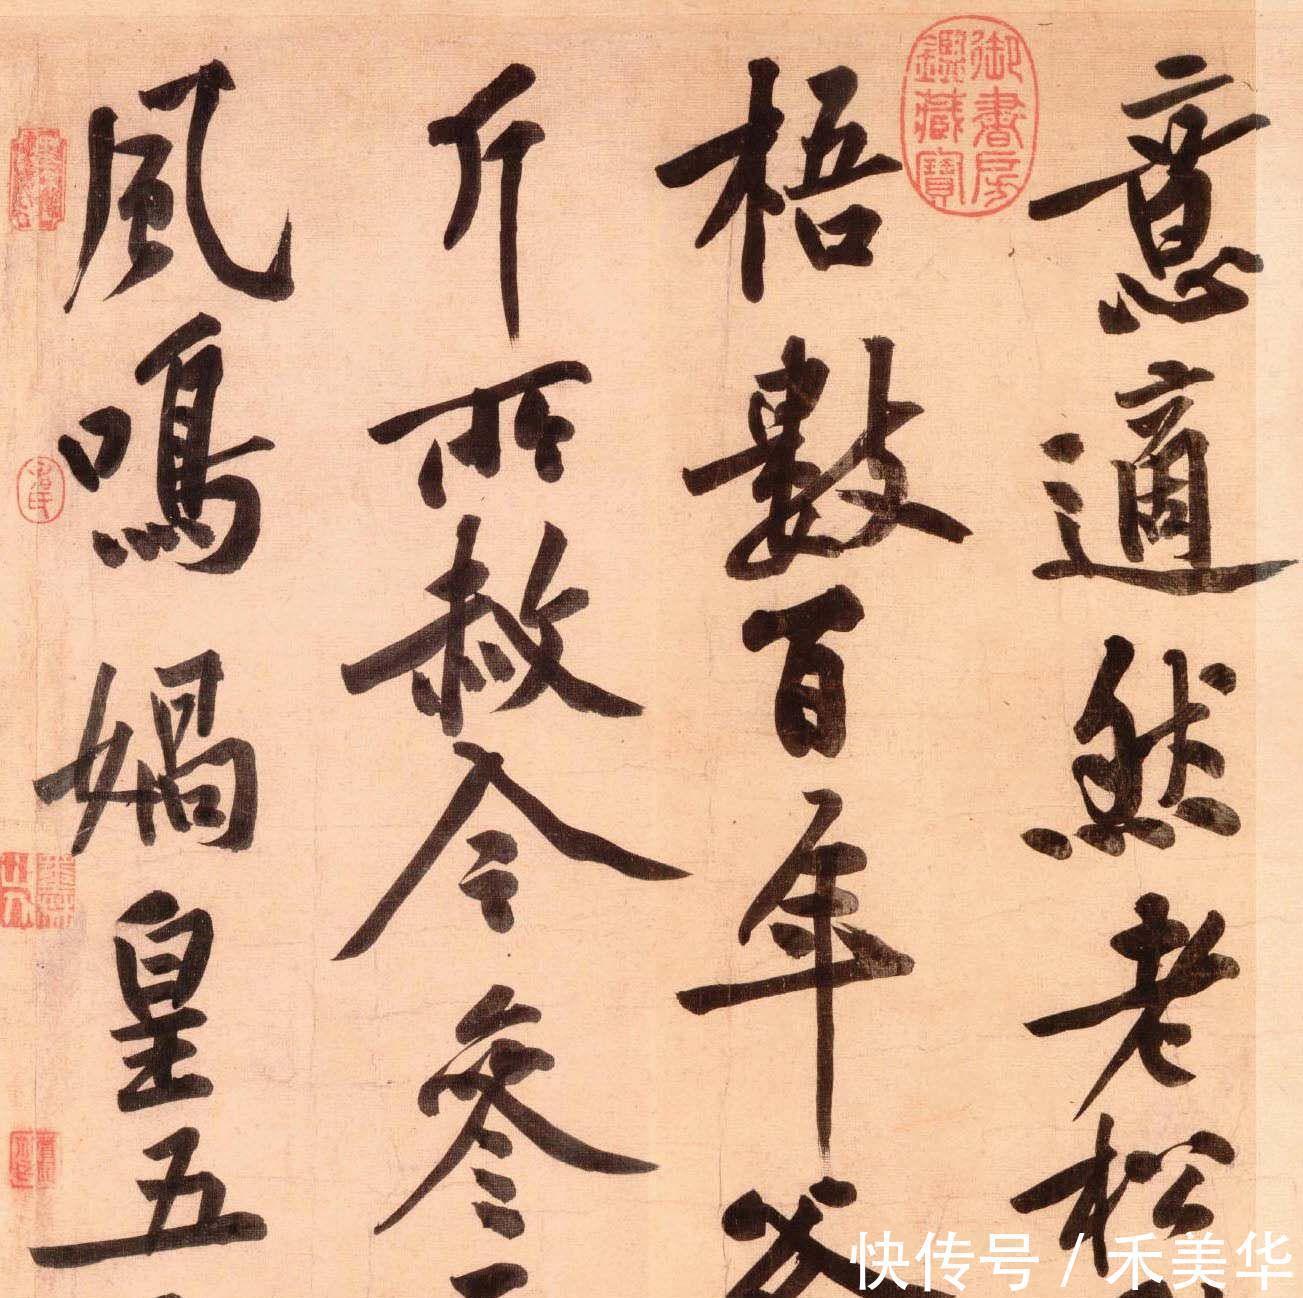 意適然老松
梧數百年斧
斤所赦令參
風鳴媧皇五
御書房鑑藏寶
快传号 / 禾美华